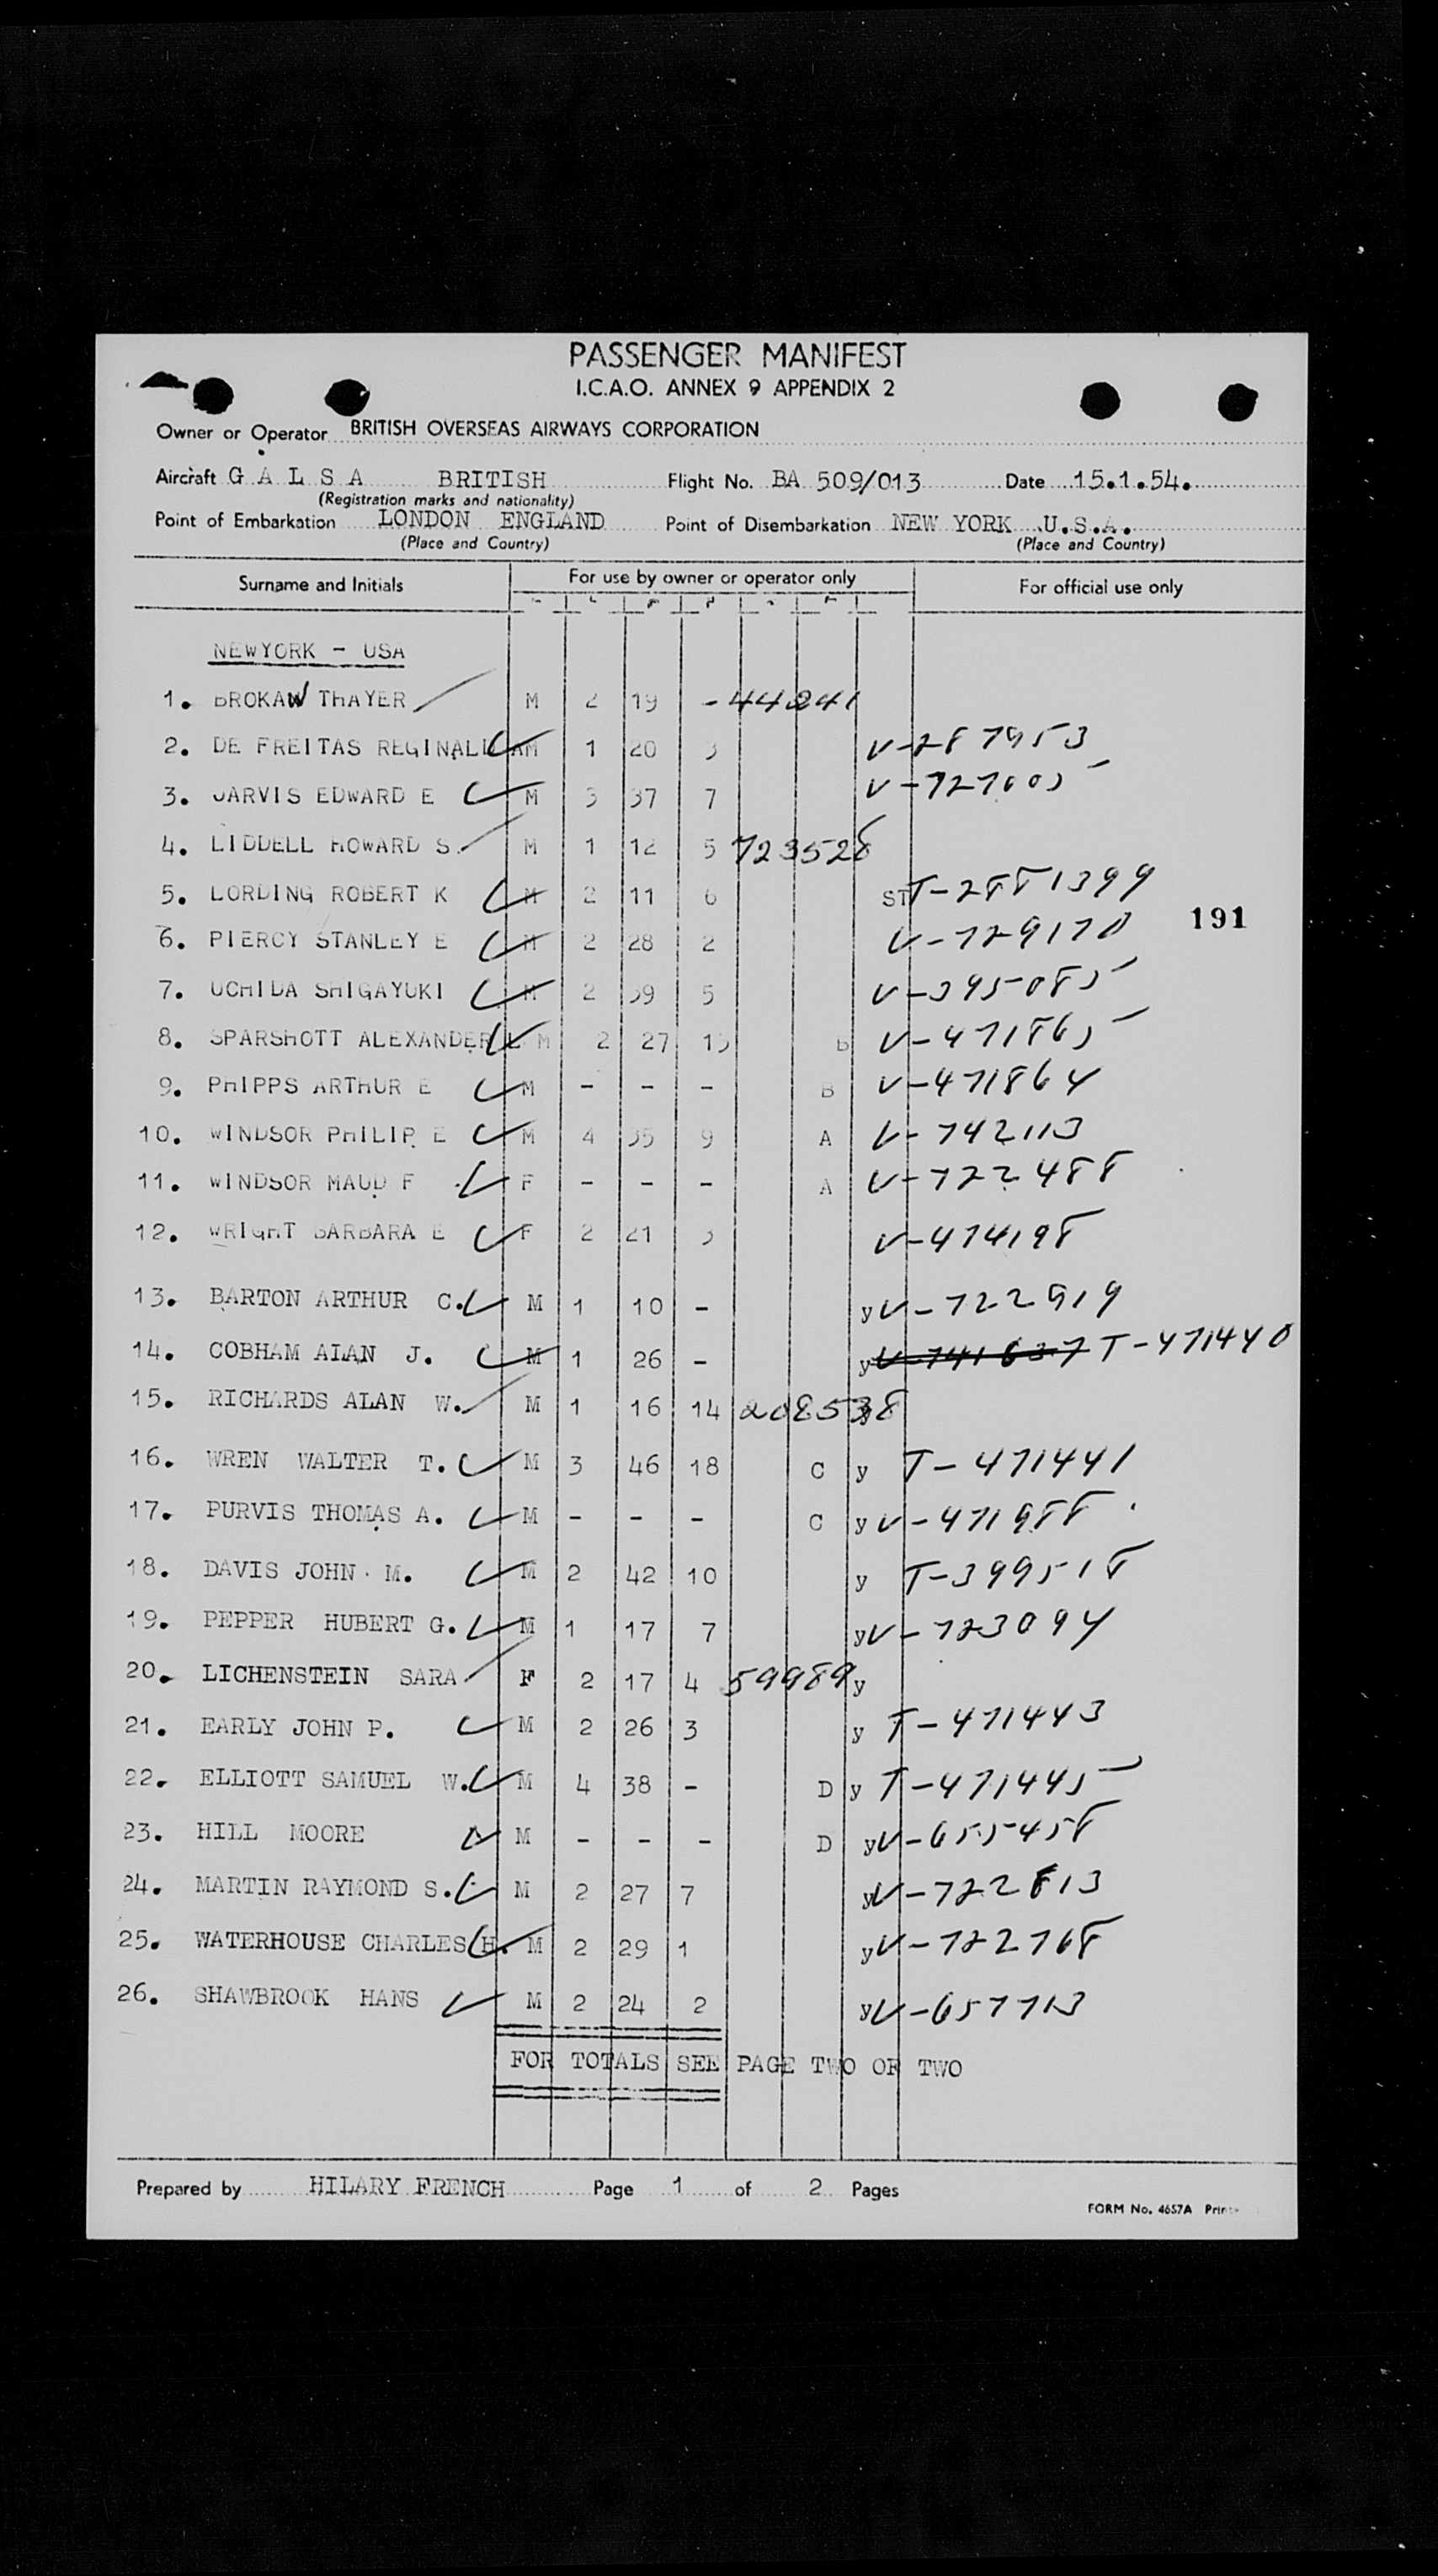 PASSENGER MANIFEST
I.C.A.O. ANNEX 9 APPENDIX 2
Owner or Operator BRITISH OVERSEAS AIRWAYS CORPORATION
Aircraft G A L S A BRITISH Flight No. BA 509/013 Date 15.1.54.
(Registration marks and nationality)
Point of Embarkation LONDON ENGLAND Point of Disembarkation NEW YORK U.S.A.
(Place and Country) (Place and Country)
Surname and Initials For use by owner or operator only For official use only
NEWYORK - USA
1. BROKAW THAYER M 2 19 - 44241
2. DE FREITAS REGINALD AM 1 20 3 V-287953
3. JARVIS EDWARD E M 3 37 7 V-727605
4. LIDDELL HOWARD S. M 1 12 5 723528
5. LORDING ROBERT K M 2 11 6 ST T-2881399
191
6. PIERCY STANLEY E M 2 28 2 V-729170
7. UCHIDA SHIGAYUKI M 2 39 5 V-395085
8. SPARSHOTT ALEXANDER L M 2 27 13 B V-471865
9. PHIPPS ARTHUR E M - - - B V-471864
10. WINDSOR PHILIP E M 4 35 9 A V-742113
11. WINDSOR MAUD F F - - - A V-722488
12. WRIGHT BARBARA E F 2 21 3 V-474198
13. BARTON ARTHUR C. M 1 10 - y V-722919
14. COBHAM ALAN J. M 1 26 - y V-741637 T-471440
15. RICHARDS ALAN W. M 1 16 14 208538
16. WREN WALTER T. M 3 46 18 C y T-471441
17. PURVIS THOMAS A. M - - - C y V-471988
18. DAVIS JOHN M. M 2 42 10 y T-399518
19. PEPPER HUBERT G. M 1 17 7 y V-723094
20. LICHENSTEIN SARA F 2 17 4 59989 y
21. EARLY JOHN P. M 2 26 3 y T-471443
22. ELLIOTT SAMUEL W. M 4 38 - D y T-471445
23. HILL MOORE M - - - D y V-655458
24. MARTIN RAYMOND S. M 2 27 7 y V-722813
25. WATERHOUSE CHARLES H. M 2 29 1 y V-722768
26. SHAWBROOK HANS M 2 24 2 y V-657713
FOR TOTALS SEE PAGE TWO OF TWO
Prepared by HILARY FRENCH Page 1 of 2 Pages
FORM No. 4657A